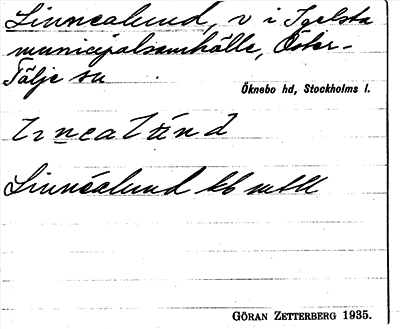 Linnealund, v i Igelsta
municipalsamhälle, Öster-
Tälje sn
Öknebo hd, Stockholms l.
Linnéalund
GÖRAN ZETTERBERG 1935.